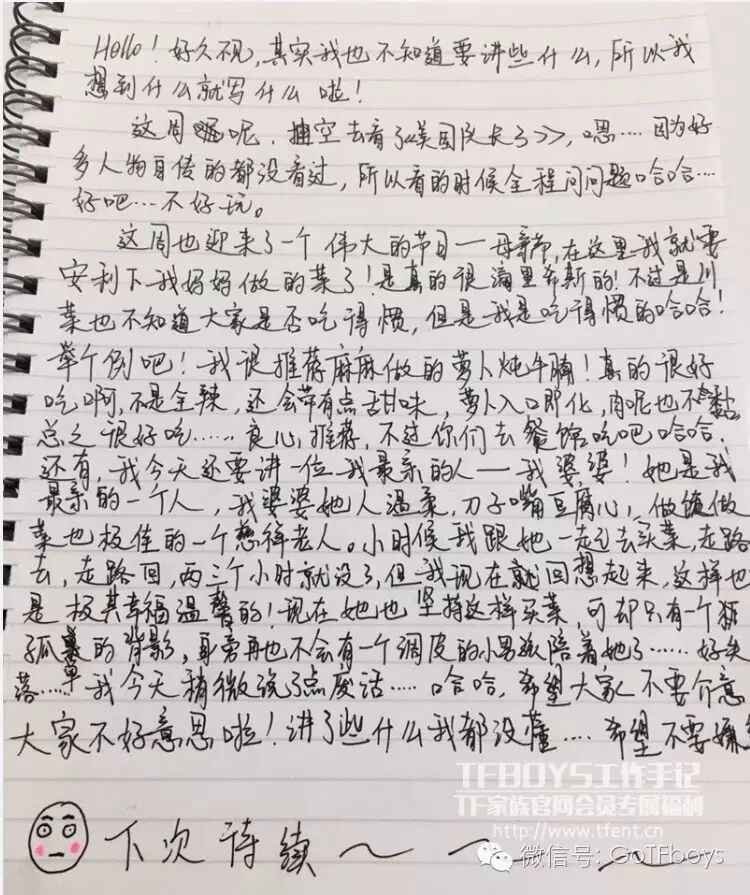 Hello！好久不视，其实我也不知道要讲些什么，所以我
想到什么就写什么 啦！
这周呢，抽空去看了《美国队长3》》，嗯……因为好
多人物自传的都没看过，所以看的时候全程问问题哈哈…
好吧…不好玩。
这周也迎来了一个 伟大的节日一母亲节，在这里我就要
安利下我妈妈做的菜了！是真的很满里希斯的！不过是川
菜也不知道大家是否吃得惯，但是我是吃得惯的哈哈！
举个例吧！我很推荐麻麻做的萝卜炖牛腩！真的很好
吃啊，不是全辣，还会带有点甜味，萝卜入口即化，肉呢也不黏
总之很好吃……良心推荐，不过你们去餐馆吃吧哈哈．
还有，我今天还要讲一位我最亲的人一我婆婆！她是我
最亲的一个人，我婆婆她人温柔，刀子嘴豆腐心，做饭做
菜也极佳的一个慈祥老人。小时候我跟她一起去买菜，走路
去，走路回，两三个小时就没了，但我现在就回想起来，这样也
是极其幸福温馨的！现在她也坚持这样买菜，可却只有一个
孤单的背影，身旁再也不会有一个调皮的小男孩陪着她了……好失
落……我今天稍微说了点废话……哈哈，希望大家不要介意
大家不好意思啦！讲了些什么我都没懂……希望不要嫌
下次待续～～～
TFBOYS工作手记
TF家族官网会员专属福利
http://www.tfent.cn
微信号: GoTFboys